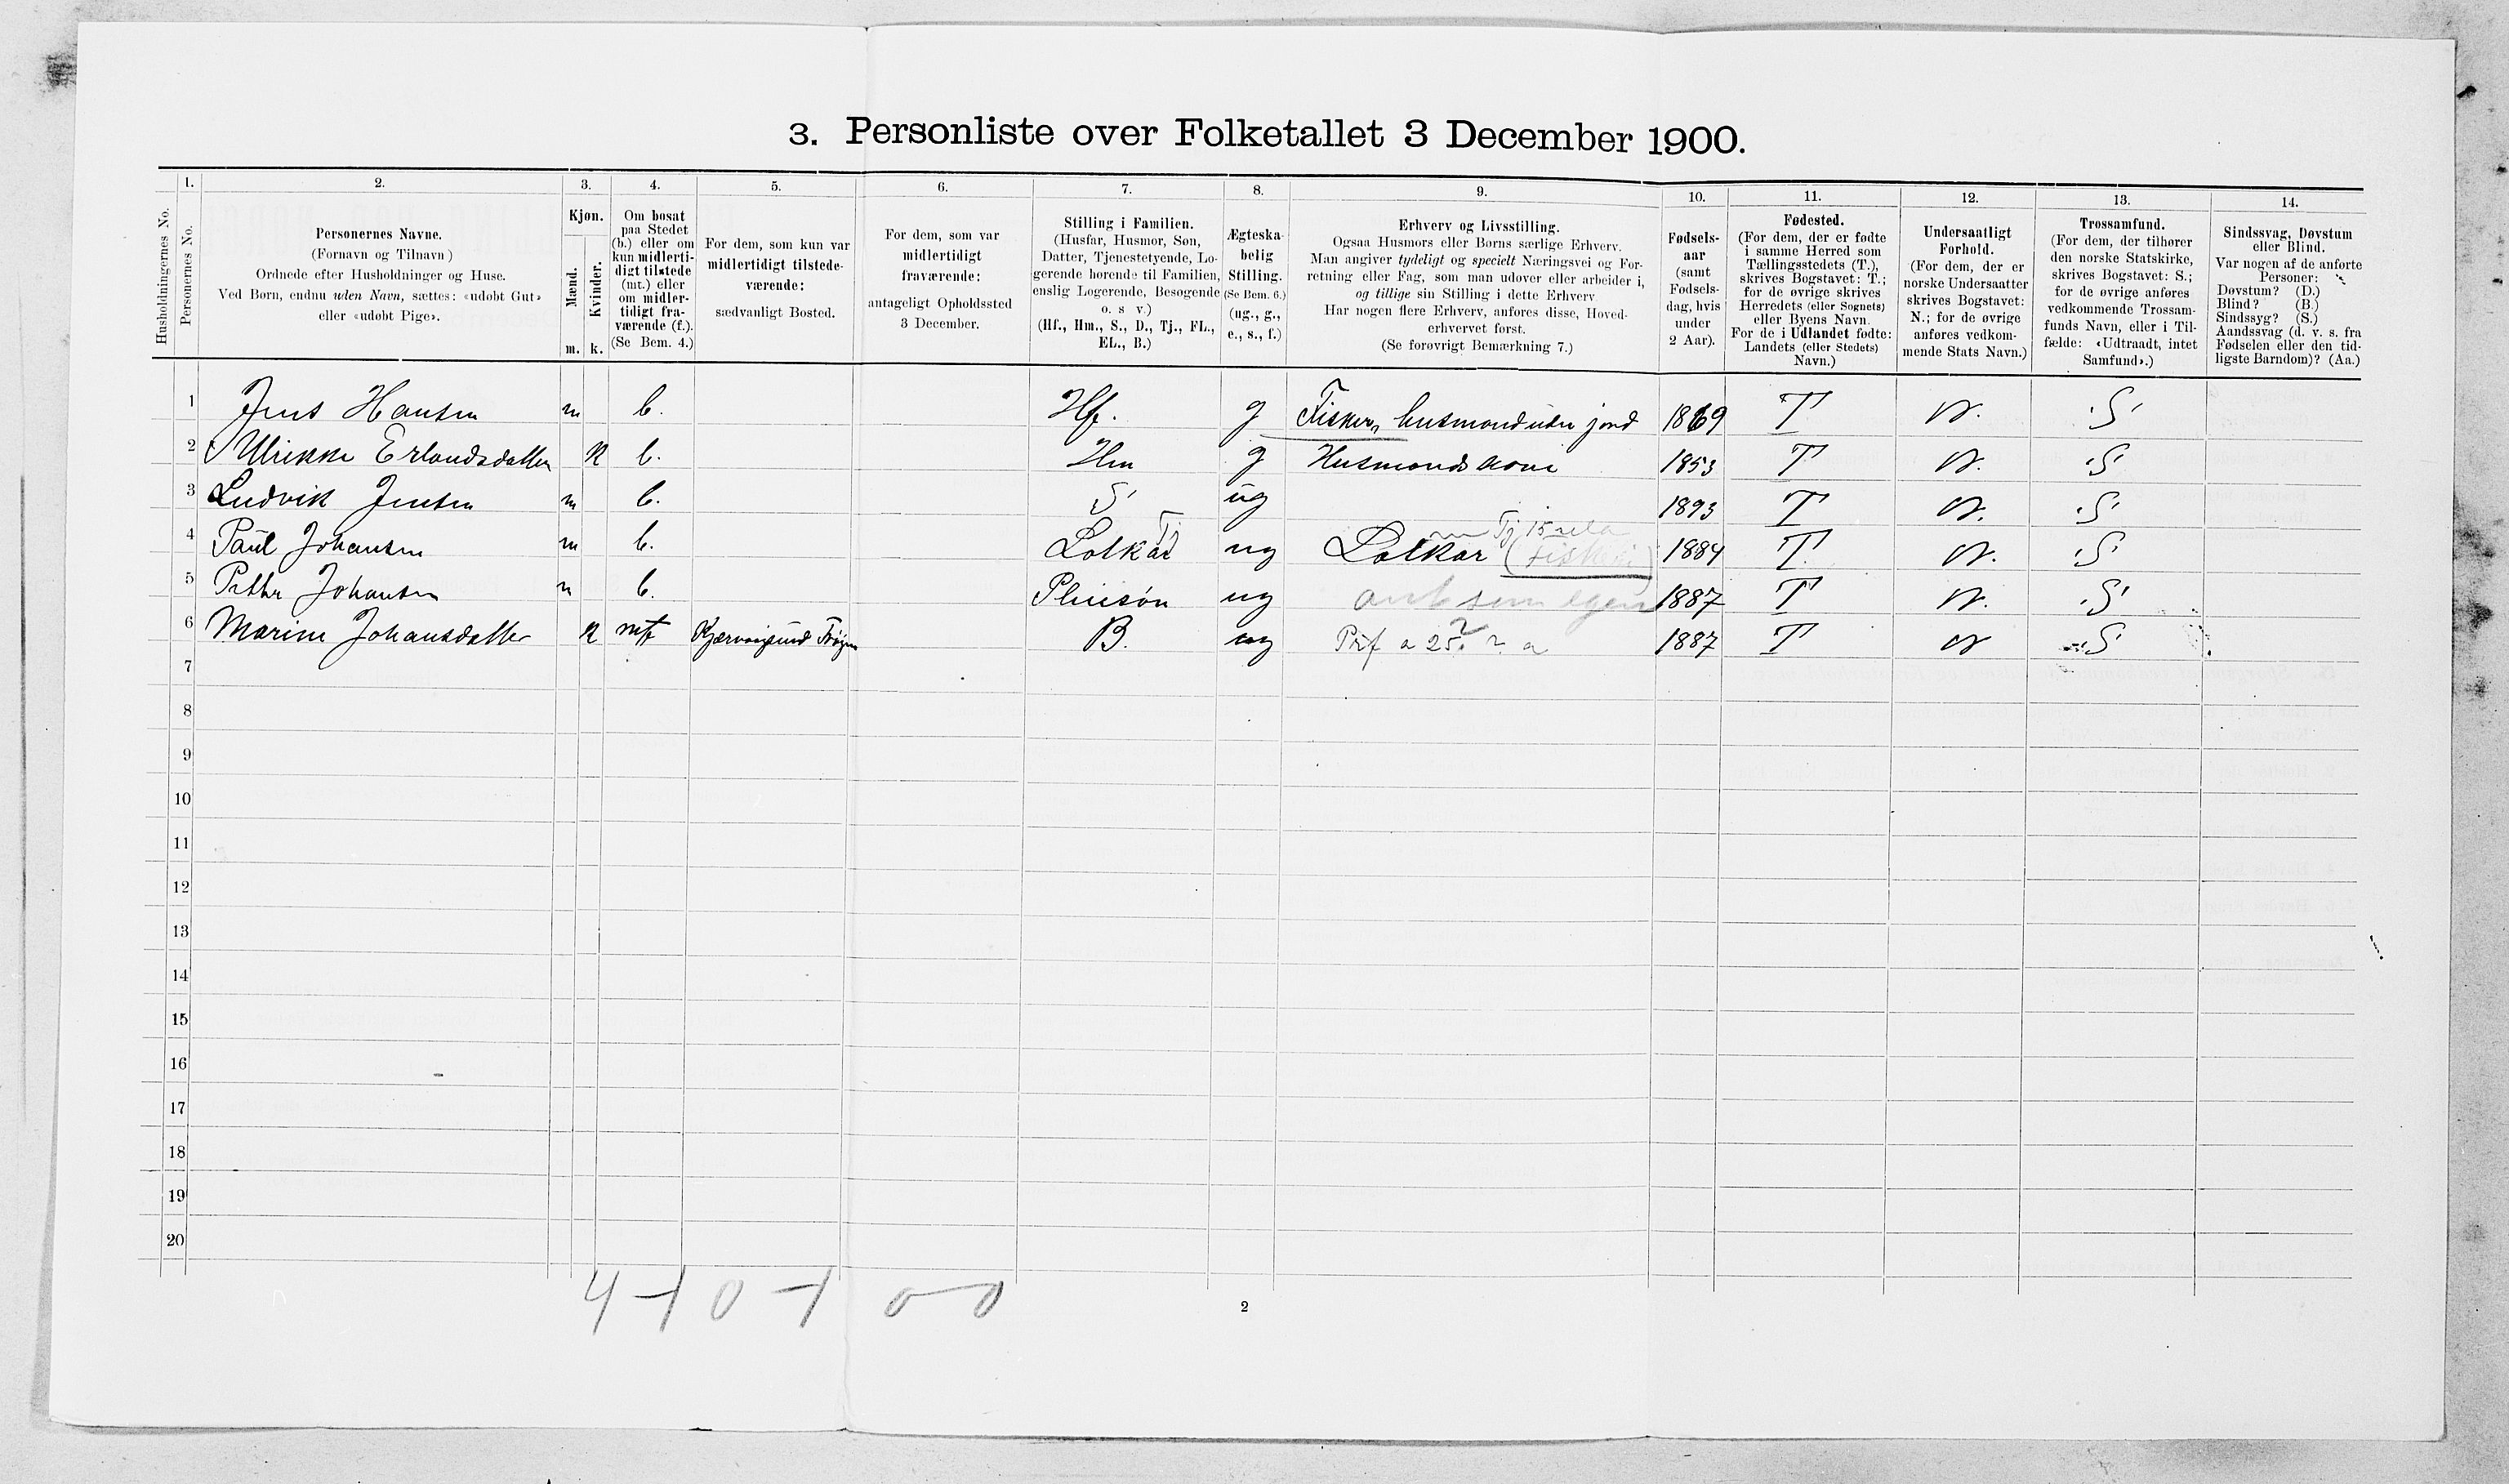 3. Personliste over Folketallet 3 December 1900.
Husholdningernes No.
1.
Personernes No.
2.
Personernes Navne.
(Fornavn og Tilnavn)
Ordnede efter Husholdninger og Huse.
Ved Børn, endnu uden Navn, sættes: «udøbt Gut»
eller «udøbt Pige».
3.
Kjøn.
Mænd.
Kvinder.
m. k.
4.
Om bosat
paa Stedet
(b.) eller om
kun midlerti-
digt tilstede
(mt.) eller
om midler-
tidigt fra-
værende (f.).
(Se Bem. 4.)
5.
For dem, som kun var
midlertidigt tilstede-
værende:
sædvanligt Bosted.
6.
For dem, som var
midlertidigt
fraværende:
antageligt Opholdssted
3 December.
7.
Stilling i Familien.
(Husfar, Husmor, Søn,
Datter, Tjenestetyende, Lo-
gerende hørende til Familien,
enslig Logerende, Besøgende
o. s v.)
(Hf., Hm., S., D., Tj., FL.,
EL., B.)
8.
Ægteska-
belig
Stilling.
(Se Bem. 6.)
(ug., g.,
e., s., f.)
9.
Erhverv og Livsstilling.
Ogsaa Husmors eller Børns særlige Erhverv.
Man angiver tydeligt og specielt Næringsvei og For-
retning eller Fag, som man udøver eller arbeider i,
og tillige sin Stilling i dette Erhverv.
Har nogen flere Erhverv, anføres disse, Hoved-
erhvervet først.
(Se forøvrigt Bemærkning 7.)
10.
Fødsels-
aar
(samt
Fødsels-
dag, hvis
under
2 Aar).
11.
Fødested.
(For dem, der er fødte
i samme Herred som
Tællingsstedets (T.),
skrives Bogstavet: T.;
for de øvrige skrives
Herredets (eller Sognets)
eller Byens Navn.
For de i Udlandet fødte:
Landets (eller Stedets)
Navn.)
12.
Undersaatligt
Forhold.
(For dem, der er
norske Undersaatter
skrives Bogstavet:
N.; for de øvrige
anføres vedkom-
mende Stats Navn.)
13.
Trossamfund.
(For dem, der tilhører
den norske Statskirke,
skrives Bogstavet: S.;
for de øvrige anføres
vedkommende Trossam-
funds Navn, eller i Til-
fælde: «Udtraadt, intet
Samfund».)
14.
Sindssvag, Døvstum
eller Blind.
Var nogen af de anførte
Personer:
Døvstum? (D.)
Blind? (B.)
Sindssyg? (S.)
Aandssvag (d. v. s. fra
Fødselen eller den tid-
ligste Barndom)? (Aa.)
1 Jens Hansen m b. Hf. g Fisker, husmand uden jord 1869 T N. S
2 Ulrikke Erlandsdatter k b. Hm g Husmandskone 1853 T N. S
3 Ludvik Jensen m b. S ug 1893 T N. S
Tj
4 Paul Johansen m b. ug 1884 T N. S
5 Petter Johansen m b. Pleiesøn ug 1887 T N. S
6 Marine Johansdatter k mt B. ug 1887 T N S
7
8
9
10
11
12
13
14
15
16
17
18
19
20
4-1 0-1 0-0
2